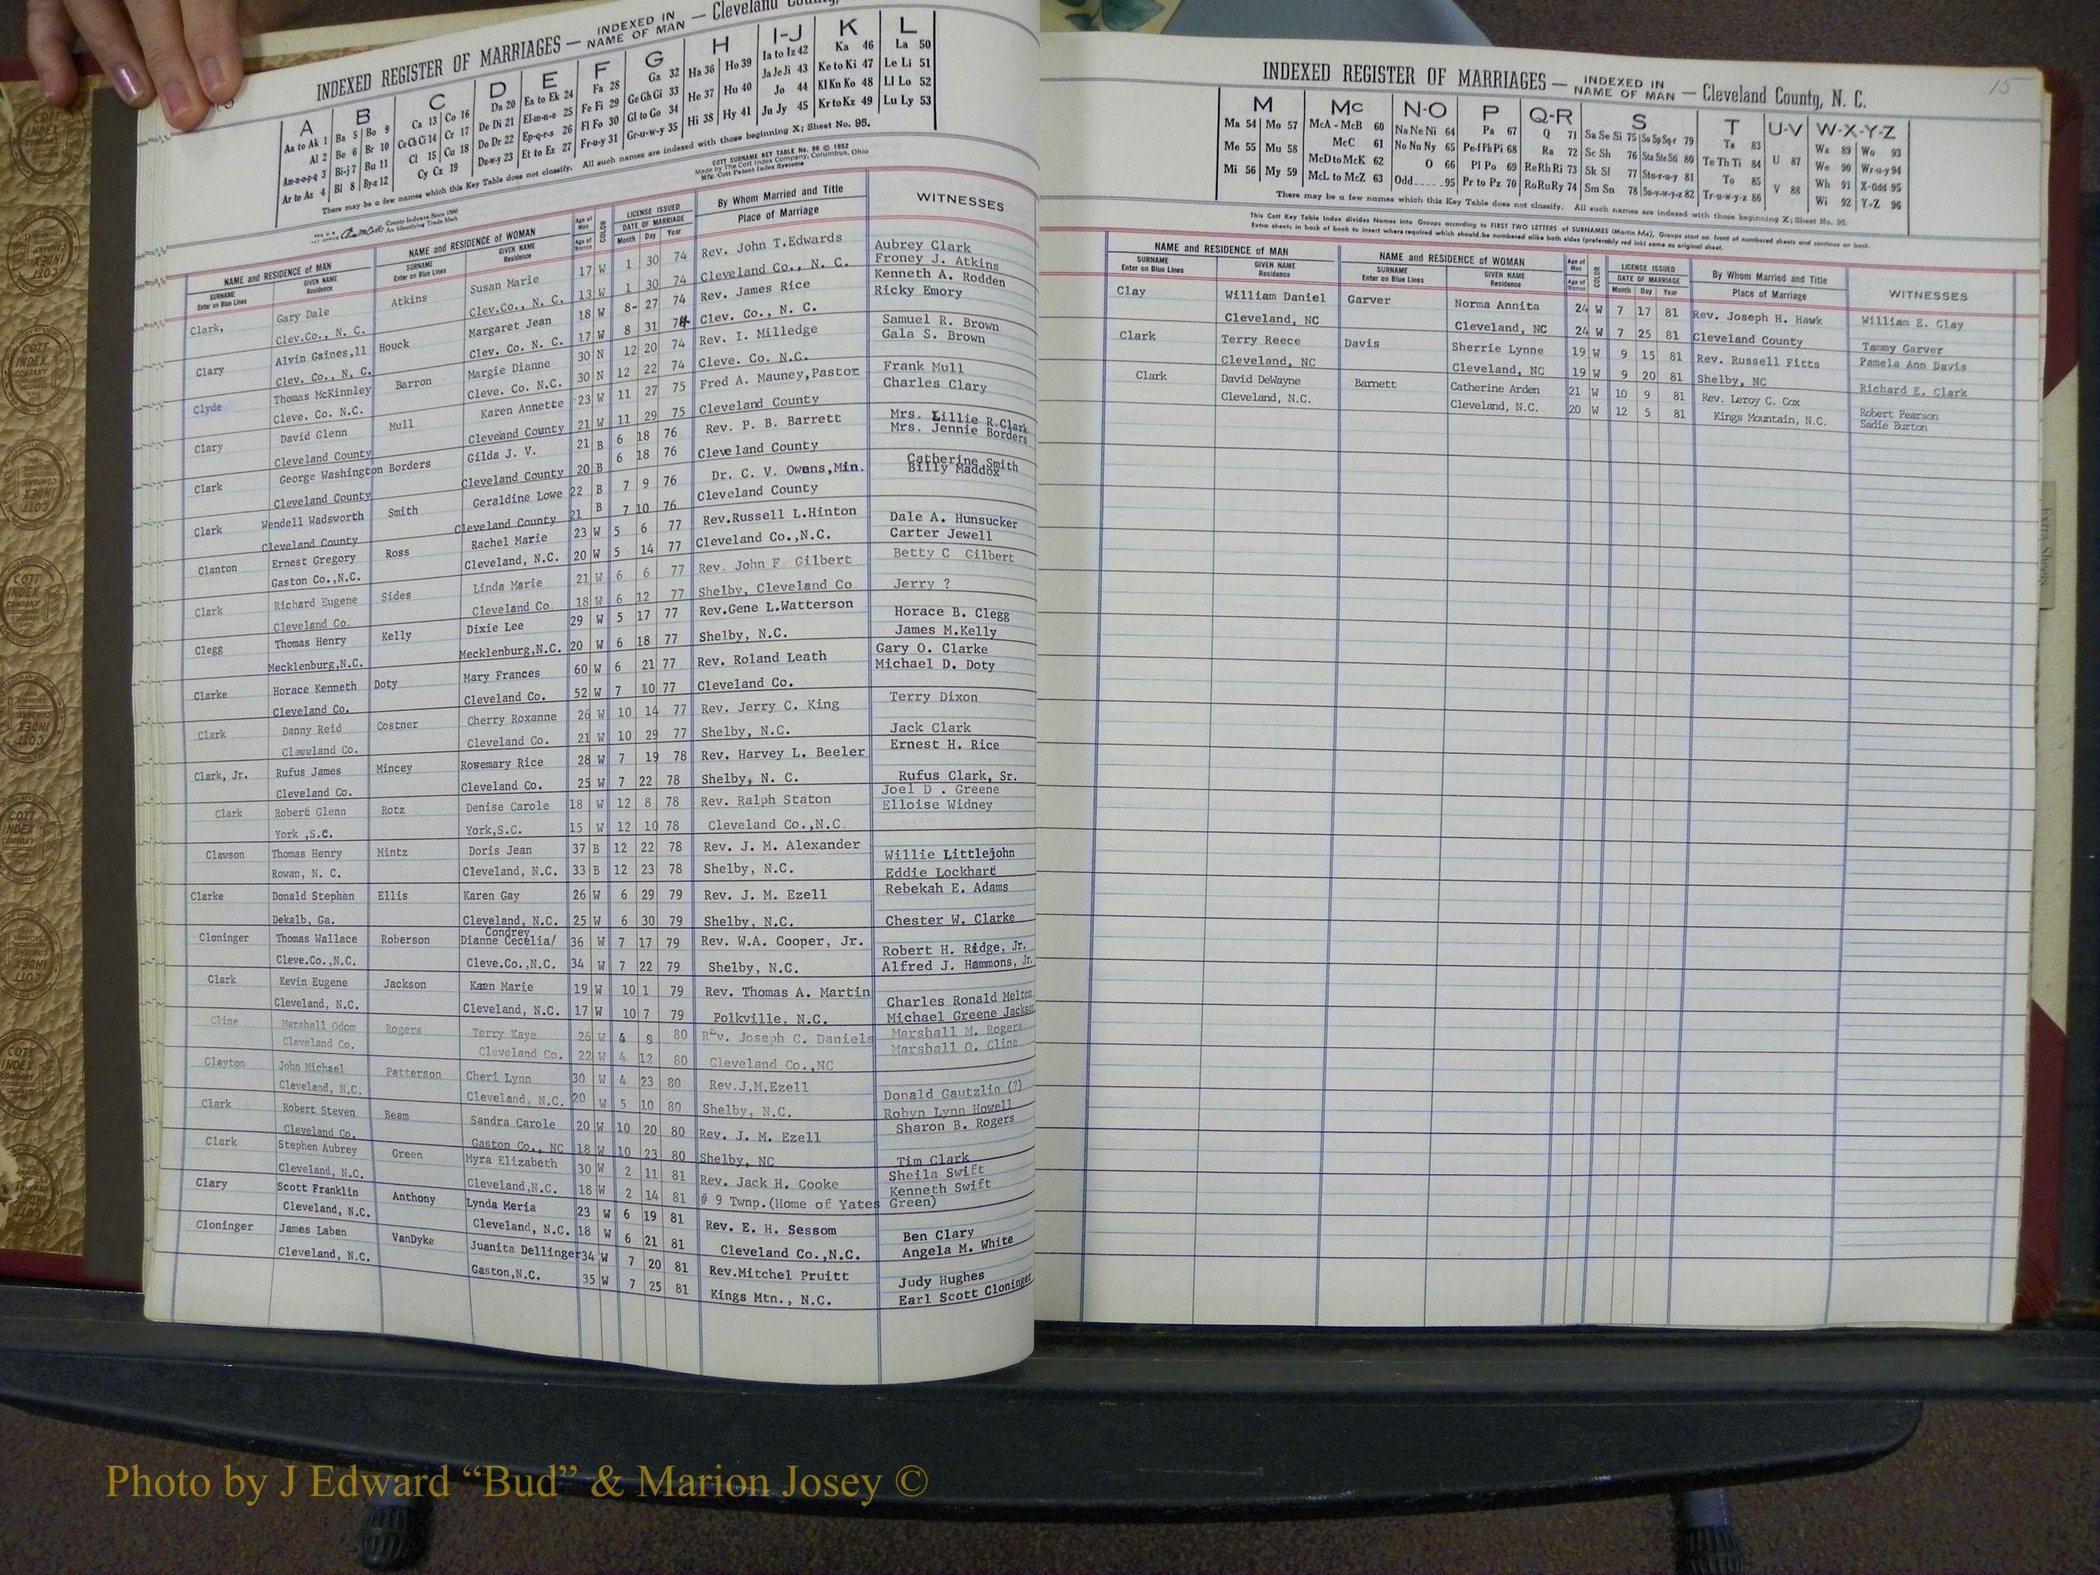 INDEXED REGISTER OF MARRIAGES — INDEXED IN NAME OF MAN — Cleveland County,
A B C D E F G H I-J K L
Aa to Ak 1 Ba 5 Bo 9 Ca 13 Co 16 Da 20 Ea to Ek 24 Fa 28 Ga 32 Ha 36 Ho 39 Ia to Iz 42 Ka 46 La 50
Al 2 Be 6 Br 10 Ce Ch Ci 14 Cr 17 De Di 21 El-m-n-o 25 Fe Fi 29 Ge Gh Gi 33 He 37 Hu 40 Ja Je Ji 43 Ke to Ki 47 Le Li 51
Am-n-o-p-q 3 Bi-j 7 Bu 11 Cl 15 Cu 18 Do Dr 22 Ep-q-r-s 26 Fl Fo 30 Gl to Go 34 Hi 38 Hy 41 Jo 44 Kl Kn Ko 48 Ll Lo 52
Ar to Az 4 Bl 8 By-z 12 Cy Cz 19 Du-w-y 23 Et to Ez 27 Fr-u-y 31 Gr-u-w-y 35 Ju Jy 45 Kr to Kz 49 Lu Ly 53
There may be a few names which this Key Table does not classify. All such names are indexed with those beginning X; Sheet No. 95.
COTT SURNAME KEY TABLE No. 96 © 1952
Made by The Cott Index Company, Columbus, Ohio
Mfrs. Cott Patent Index Systems
County Indexes Since 1888
An Identifying Trade Mark
NAME and RESIDENCE OF MAN NAME and RESIDENCE OF WOMAN Age of Man COLOR LICENSE ISSUED By Whom Married and Title WITNESSES
SURNAME Enter on Blue Lines GIVEN NAME Residence SURNAME Enter on Blue Lines GIVEN NAME Residence Age of Woman DATE OF MARRIAGE Month Day Year Place of Marriage
Clark, Gary Dale Atkins Susan Marie 17 W 1 30 74 Rev. John T.Edwards Aubrey Clark
Clev.Co., N. C. Clev.Co., N. C. 13 W 1 30 74 Cleveland Co., N. C. Froney J. Atkins
Clary Alvin Gaines,11 Houck Margaret Jean 18 W 8- 27 74 Rev. James Rice Kenneth A. Rodden
Clev. Co., N. C. Clev. Co. N. C. 17 W 8 31 74 Clev. Co., N. C. Ricky Emory
Clyde Thomas McKinnley Barron Margie Dianne 30 N 12 20 74 Rev. I. Milledge Samuel R. Brown
Cleve. Co. N.C. Cleve. Co. N.C. 30 N 12 22 74 Cleve. Co. N.C. Gala S. Brown
Clary David Glenn Mull Karen Annette 23 W 11 27 75 Fred A. Mauney,Pastor Frank Mull
Cleveland County Cleveland County 21 W 11 29 75 Cleveland County Charles Clary
Clark George Washington Borders Gilda J. V. 21 B 6 18 76 Rev. P. B. Barrett Mrs. Lillie R.Clark
Cleveland County Cleveland County 20 B 6 18 76 Cleveland County Mrs. Jennie Borders
Clark Wendell Wadsworth Smith Geraldine Lowe 22 B 7 9 76 Dr. C. V. Owens,Min. Catherine Smith
Cleveland County Cleveland County 21 B 7 10 76 Cleveland County Billy Maddox
Clanton Ernest Gregory Ross Rachel Marie 23 W 5 6 77 Rev.Russell L.Hinton Dale A. Hunsucker
Gaston Co.,N.C. Cleveland, N.C. 20 W 5 14 77 Cleveland Co.,N.C. Carter Jewell
Clark Richard Eugene Sides Linda Marie 21 W 6 6 77 Rev. John F Gilbert Betty C Gilbert
Cleveland Co. Cleveland Co. 18 W 6 12 77 Shelby, Cleveland Co Jerry ?
Clegg Thomas Henry Kelly Dixie Lee 29 W 5 17 77 Rev.Gene L.Watterson Horace B. Clegg
Mecklenburg,N.C. Mecklenburg,N.C. 20 W 6 18 77 Shelby, N.C. James M.Kelly
Clarke Horace Kenneth Doty Mary Frances 60 W 6 21 77 Rev. Roland Leath Gary O. Clarke
Cleveland Co. Cleveland Co. 52 W 7 10 77 Cleveland Co. Michael D. Doty
Clark Danny Reid Costner Cherry Roxanne 26 W 10 14 77 Rev. Jerry C. King Terry Dixon
Cleveland Co. Cleveland Co. 21 W 10 29 77 Shelby, N.C. Jack Clark
Clark, Jr. Rufus James Mincey Rosemary Rice 28 W 7 19 78 Rev. Harvey L. Beeler Ernest H. Rice
Cleveland Co. Cleveland Co. 25 W 7 22 78 Shelby, N. C. Rufus Clark, Sr.
Clark Robert Glenn Rotz Denise Carole 18 W 12 8 78 Rev. Ralph Staton Joel D . Greene
York ,S.C. York,S.C. 15 W 12 10 78 Cleveland Co.,N.C. Elloise Widney
Clawson Thomas Henry Mintz Doris Jean 37 B 12 22 78 Rev. J. M. Alexander Willie Littlejohn
Rowan, N. C. Cleveland, N.C. 33 B 12 23 78 Shelby, N.C. Eddie Lockhart
Clarke Donald Stephan Ellis Karen Gay 26 W 6 29 79 Rev. J. M. Ezell Rebekah E. Adams
Dekalb, Ga. Cleveland, N.C. 25 W 6 30 79 Shelby, N.C. Chester W. Clarke
Cloninger Thomas Wallace Roberson Dianne Cecelia/ Condrey 36 W 7 17 79 Rev. W.A. Cooper, Jr. Robert H. Ridge, Jr.
Cleve.Co.,N.C. Cleve.Co.,N.C. 34 W 7 22 79 Shelby, N.C. Alfred J. Hammons, Jr.
Clark Kevin Eugene Jackson Karen Marie 19 W 10 1 79 Rev. Thomas A. Martin Charles Ronald Melton
Cleveland, N.C. Cleveland, N.C. 17 W 10 7 79 Polkville, N.C. Michael Greene Jackson
Cline Marshall Odom Rogers Terry Kaye 26 W 4 8 80 Rev. Joseph C. Daniels Marshall M. Rogers
Cleveland Co. Cleveland Co. 22 W 4 12 80 Cleveland Co.,NC Marshall O. Cline
Clayton John Michael Patterson Cheri Lynn 30 W 4 23 80 Rev.J.M.Ezell Donald Gautzlin (?)
Cleveland, N.C. Cleveland, N.C. 20 W 5 10 80 Shelby, N.C. Robyn Lynn Howell
Clark Robert Steven Beam Sandra Carole 20 W 10 20 80 Rev. J. M. Ezell Sharon B. Rogers
Cleveland Co. Gaston Co., NC 18 W 10 23 80 Shelby, NC Tim Clark
Clark Stephen Aubrey Green Myra Elizabeth 30 W 2 11 81 Rev. Jack H. Cooke Sheila Swift
Cleveland, N.C. Cleveland,N.C. 18 W 2 14 81 # 9 Twnp.(Home of Yates Green) Kenneth Swift
Clary Scott Franklin Anthony Lynda Meria 23 W 6 19 81 Rev. E. H. Sessom Ben Clary
Cleveland, N.C. Cleveland, N.C. 18 W 6 21 81 Cleveland Co.,N.C. Angela M. White
Cloninger James Laben VanDyke Juanita Dellinger 34 W 7 20 81 Rev.Mitchel Pruitt Judy Hughes
Cleveland, N.C. Gaston,N.C. 35 W 7 25 81 Kings Mtn., N.C. Earl Scott Cloninger
15
INDEXED REGISTER OF MARRIAGES — INDEXED IN NAME OF MAN — Cleveland County, N. C.
M Mc N-O P Q-R S T U-V W-X-Y-Z
Ma 54 Mo 57 McA - McB 60 Na Ne Ni 64 Pa 67 Q 71 Sa Se Si 75 So Sp Sq-r 79 Ta 83 Wa 89 Wo 93
Me 55 Mu 58 McC 61 No Nu Ny 65 Pe-f Ph Pi 68 Ra 72 Sc Sh 76 Sta Ste Sti 80 Te Th Ti 84 U 87 We 90 Wr-u-y 94
Mi 56 My 59 McD to McK 62 O 66 Pl Po 69 Re Rh Ri 73 Sk Sl 77 Sto-r-u-y 81 To 85 Wh 91 X-Odd 95
McL to McZ 63 Odd.....95 Pr to Pz 70 Ro Ru Ry 74 Sm Sn 78 Su-v-w-y-z 82 Tr-u-w-y-z 86 V 88 Wi 92 Y-Z 96
There may be a few names which this Key Table does not classify. All such names are indexed with those beginning X; Sheet No. 95.
This Cott Key Table Index divides Names into Groups according to FIRST TWO LETTERS of SURNAMES (Martin Ma), Groups start on front of numbered sheets and continue on back.
Extra sheets in back of book to insert where required which should be numbered alike both sides (preferably red ink) same as original sheet.
NAME and RESIDENCE OF MAN NAME and RESIDENCE OF WOMAN Age of Man COLOR LICENSE ISSUED By Whom Married and Title WITNESSES
SURNAME Enter on Blue Lines GIVEN NAME Residence SURNAME Enter on Blue Lines GIVEN NAME Residence Age of Woman DATE OF MARRIAGE Month Day Year Place of Marriage
Clay William Daniel Garver Norma Annita 24 W 7 17 81 Rev. Joseph H. Hawk William E. Clay
Cleveland, NC Cleveland, NC 24 W 7 25 81 Cleveland County Tammy Garver
Clark Terry Reece Davis Sherrie Lynne 19 W 9 15 81 Rev. Russell Fitts Pamela Ann Davis
Cleveland, NC Cleveland, NC 19 W 9 20 81 Shelby, NC Richard E. Clark
Clark David DeWayne Barnett Catherine Arden 21 W 10 9 81 Rev. Leroy C. Cox Robert Pearson
Cleveland, N.C. Cleveland, N.C. 20 W 12 5 81 Kings Mountain, N.C. Sadie Burton
Extra Sheets
Photo by J Edward “Bud” & Marion Josey ©